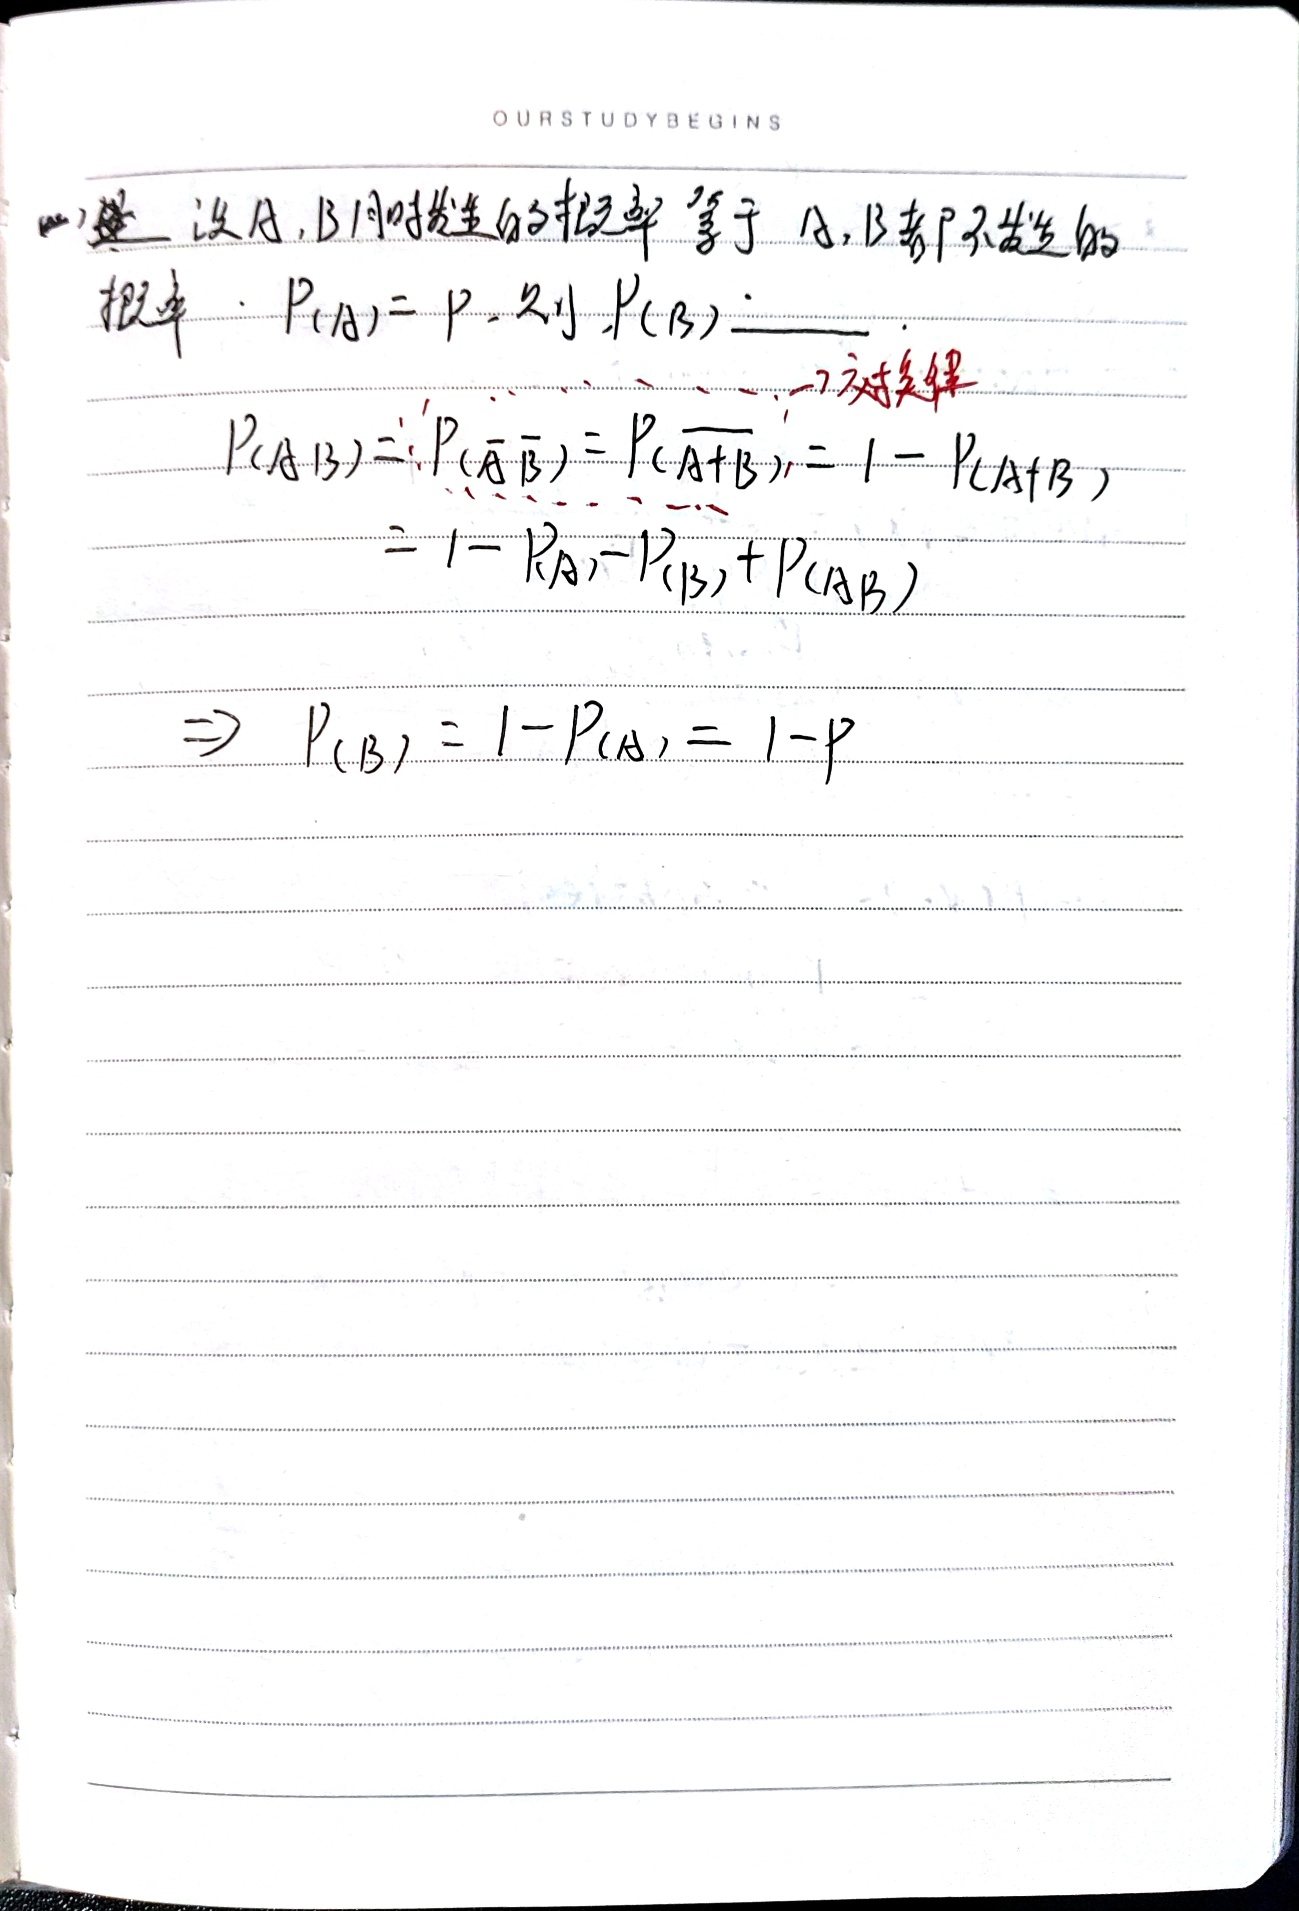 OURSTUDYBEGINS
设A,B同时发生的概率等于A,B都不发生的
概率. P(A)=p.则P(B)=____.
→对偶律
P(AB)=P(A̅ B̅)=P(\overline{A+B})=1-P(A+B)
=1-P(A)-P(B)+P(AB)
⇒ P(B)=1-P(A)=1-p